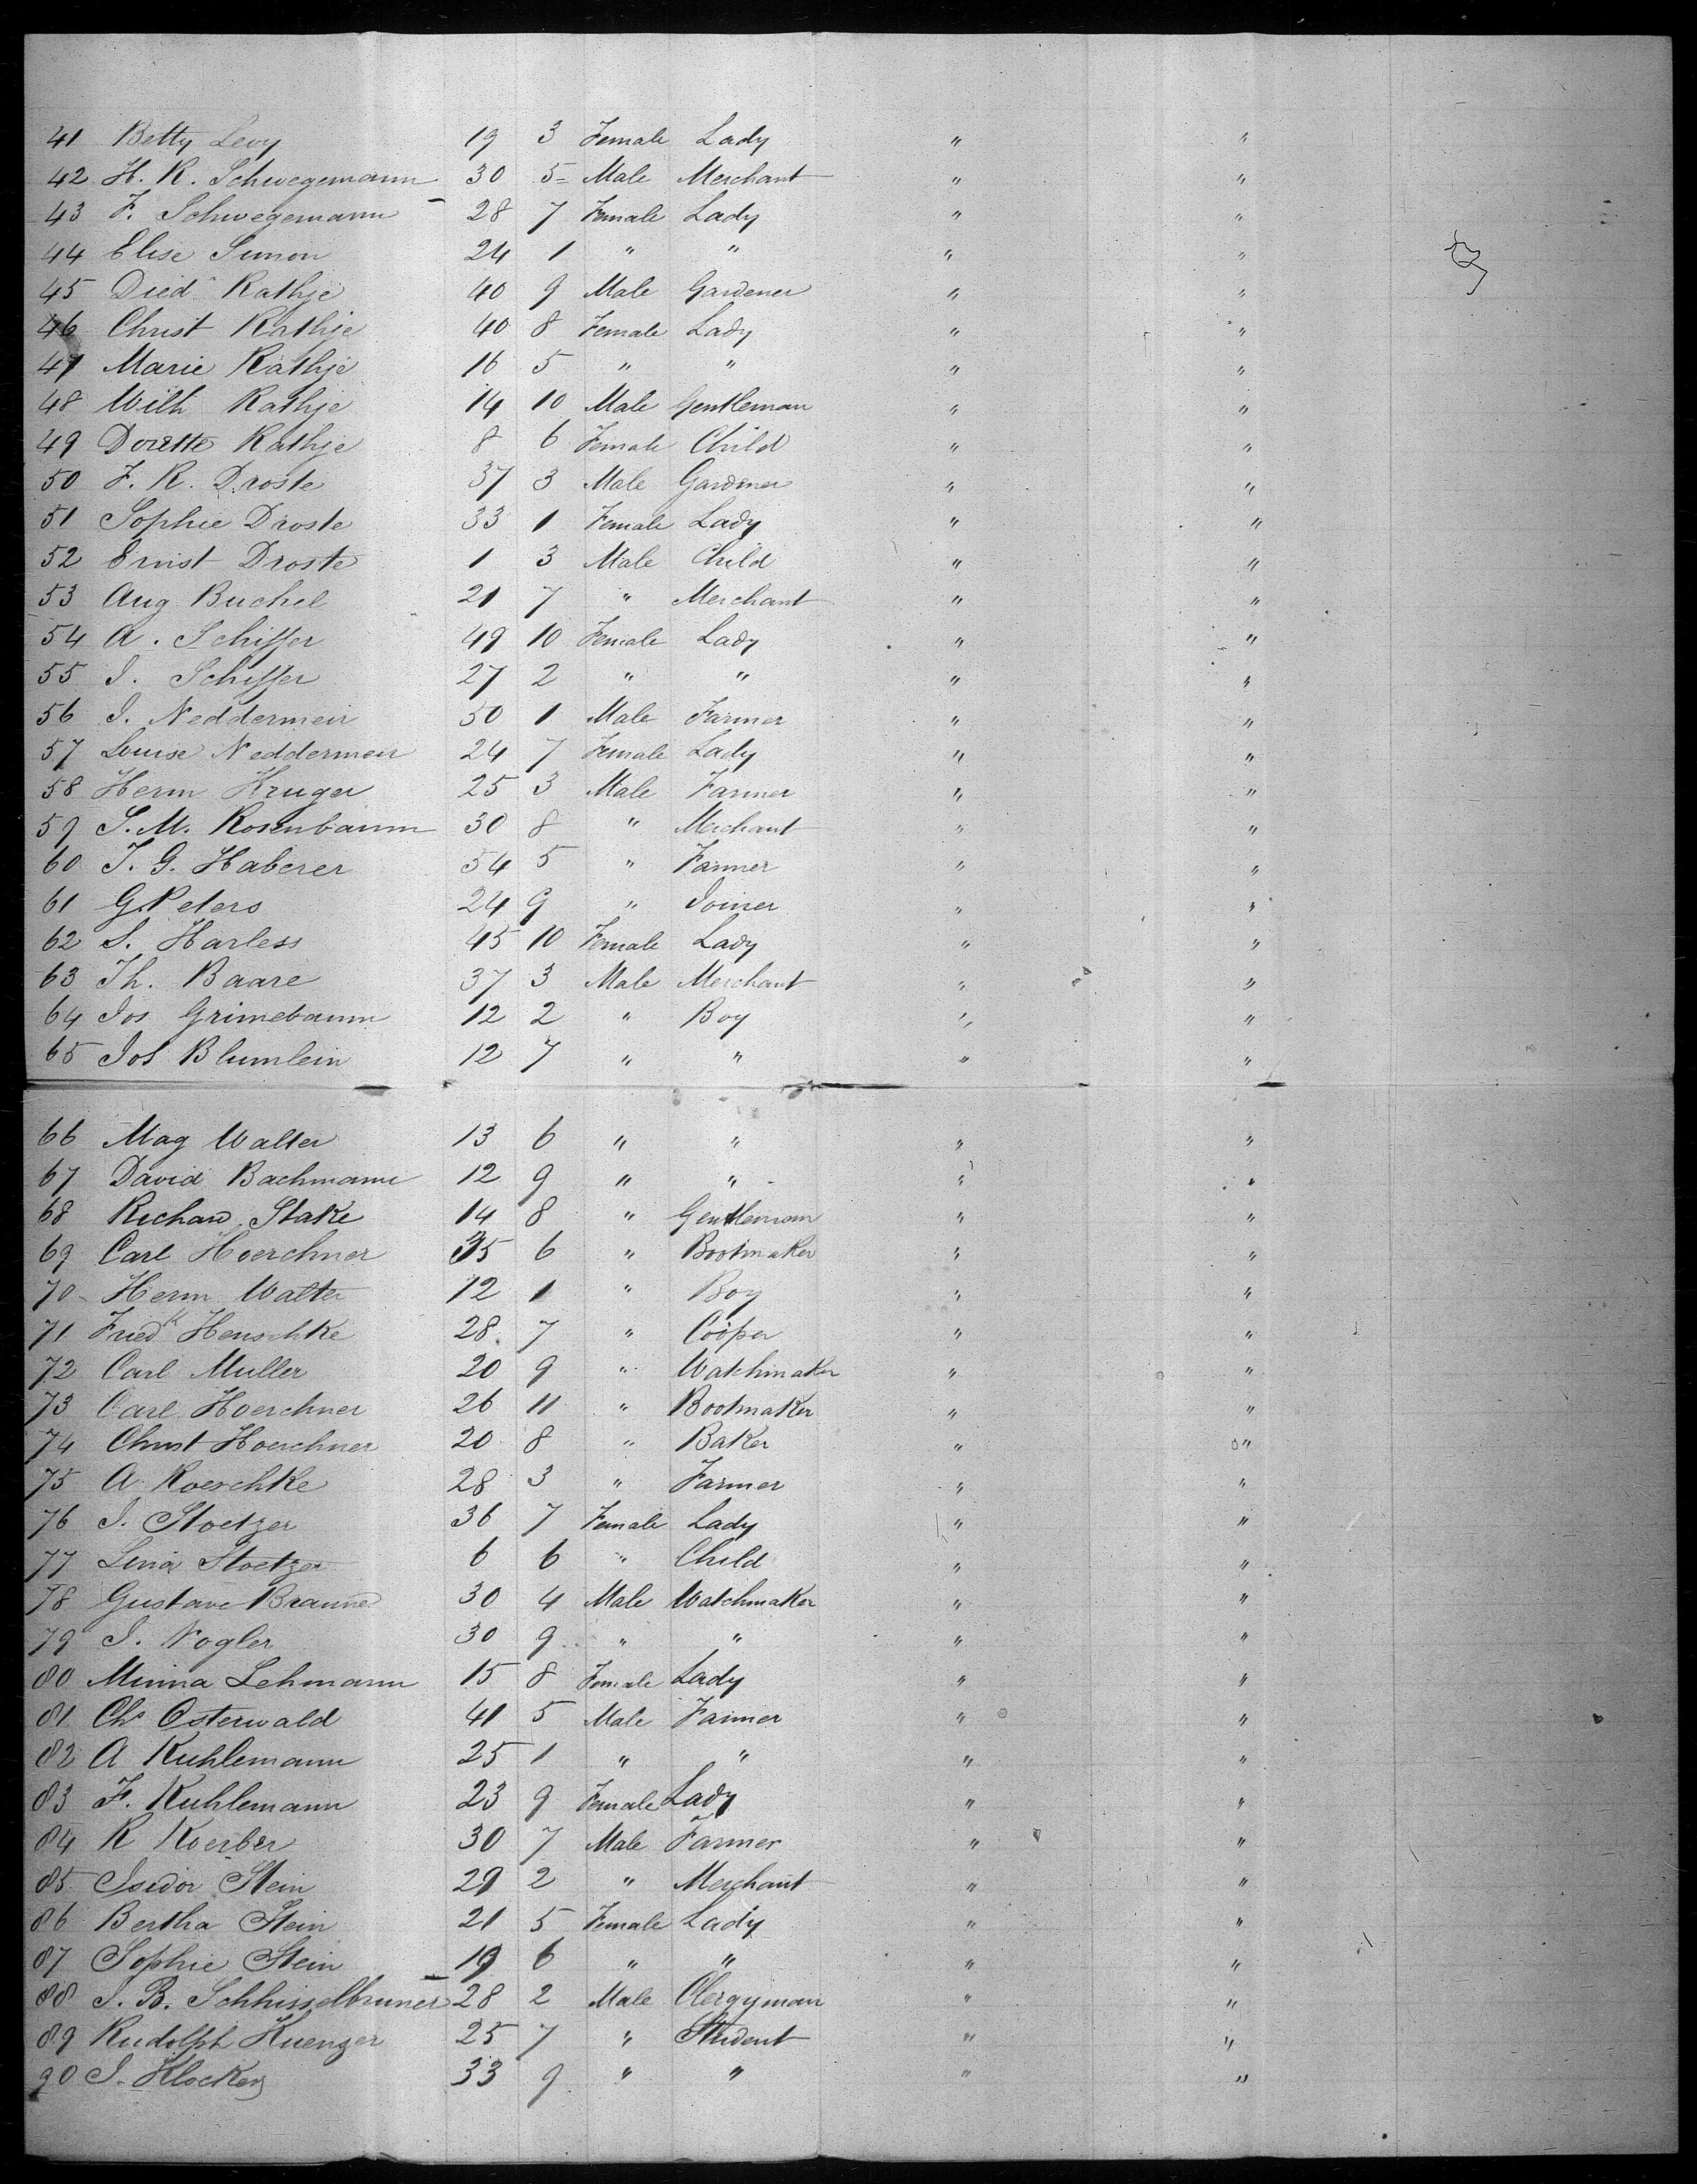 41 Betty Levy 19 3 Female Lady " "
42 H. R. Schwegemann 30 5 Male Merchant " "
43 F. Schwegemann 28 7 Female Lady " "
44 Elise Simon 24 1 " " " "
45 Died Rathje 40 9 Male Gardener " "
46 Christ Rathje 40 8 Female Lady " "
47 Marie Rathje 16 5 " " " "
48 Wilh Rathje 14 10 Male Gentleman " "
49 Dorette Rathje 8 6 Female Child " "
50 F. R. Droste 37 3 Male Gardener " "
51 Sophie Droste 33 1 Female Lady " "
52 Ernst Droste 1 3 Male Child " "
53 Aug Buchel 21 7 " Merchant " "
54 A. Schiffer 49 10 Female Lady " "
55 I. Schiffer 27 2 " " " "
56 I. Neddermeir 50 1 Male Farmer " "
57 Louise Neddermeir 24 7 Female Lady " "
58 Herm Kruger 25 3 Male Farmer " "
59 S. M. Rosenbaum 30 8 " Merchant " "
60 J. G. Haberer 54 5 " Farmer " "
61 G. Peters 24 9 " Joiner " "
62 S. Harless 45 10 Female Lady " "
63 Th. Baare 37 3 Male Merchant " "
64 Jos Grimebaum 12 2 " Boy " "
65 Jos Blumlein 12 7 " " " "
66 Mag Walter 13 6 " " " "
67 David Bachmann 12 9 " " " "
68 Richard Stake 14 8 " Gentleman " "
69 Carl Hoerchner 35 6 " Bootmaker " "
70 Herm Walter 12 1 " Boy " "
71 Friedk Henschke 28 7 " Cooper " "
72 Carl Muller 20 9 " Watchmaker " "
73 Carl Hoerchner 26 11 " Bootmaker " "
74 Christ Hoerchner 20 8 " Baker " "
75 A Roeschke 28 3 " Farmer " "
76 I. Stoetzer 36 7 Female Lady " "
77 Lina Stoetzer 6 6 " Child " "
78 Gustave Braune 30 4 Male Watchmaker " "
79 I. Vogler 30 9 " " " "
80 Minna Lehmann 15 8 Female Lady " "
81 Chs Osterwald 41 5 Male Farmer " "
82 A Kuhlemann 25 1 " " " "
83 F. Kuhlemann 23 9 Female Lady " "
84 R Koerber 30 7 Male Farmer " "
85 Isidor Stein 29 2 " Merchant " "
86 Bertha Stein 21 5 Female Lady " "
87 Sophie Stein 19 6 " " " "
88 I. B. Schhisselbruner 28 2 Male Clergyman " "
89 Rudolph Kuenzer 25 7 " Student " "
90 I. Klocker 33 9 " " " "